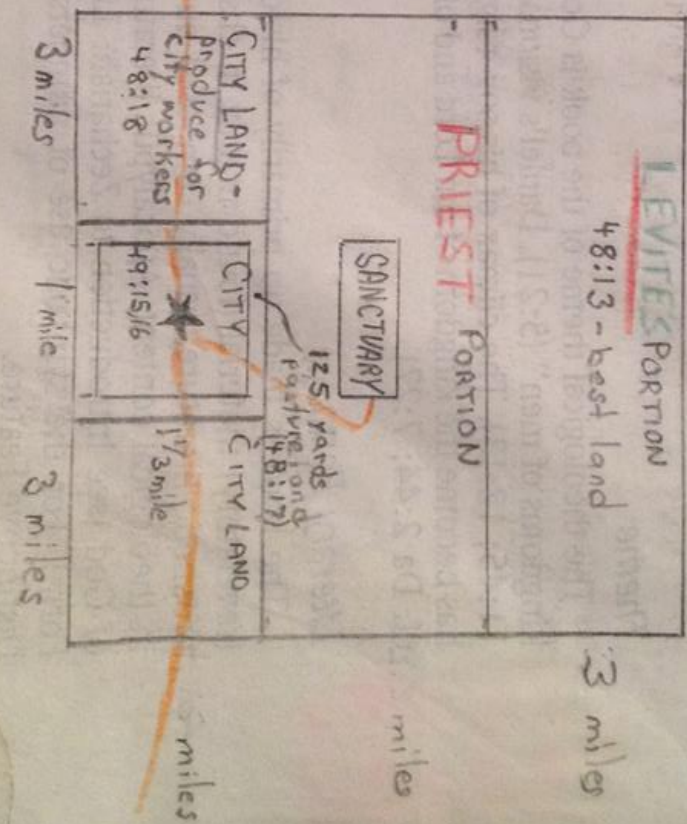 LEVITES PORTION
48:13 - best land
3 miles
PRIEST PORTION
SANCTUARY
miles
125 yards
pastureland
(48:17)
CITY LAND-
produce for
city workers
48:18
CITY
49:15/6
CITY LAND
1 1/3 mile
miles
3 miles
1 mile
3 miles